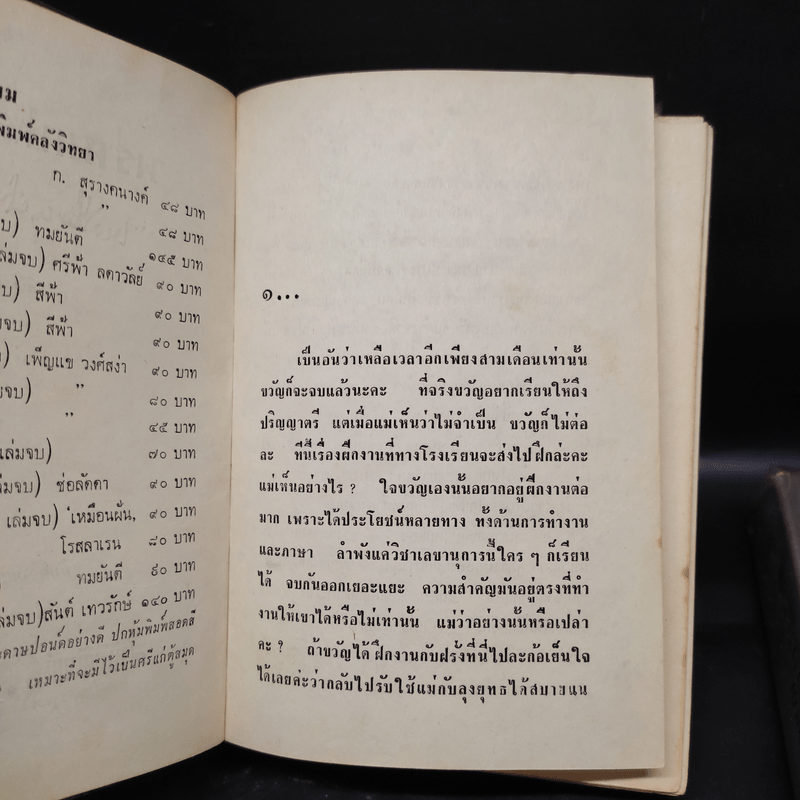 ยม
พิมพ์คลังวิทยา
ก. สุรางคนางค์ ๔๘ บาท
" ๔๘ บาท
บ) ทมยันตี ๑๔๕ บาท
ล่มจบ) ศรีฟ้า ลดาวัลย์ ๙๐ บาท
บ) สีฟ้า ๙๐ บาท
มจบ) สีฟ้า ๙๐ บาท
มจบ) เพ็ญแข วงศ์สง่า ๙๐ บาท
บ) " ๘๐ บาท
" ๔๕ บาท
เล่มจบ) ๗๐ บาท
ล่มจบ) ช่อลัดดา ๙๐ บาท
เล่มจบ) 'เหมือนฝัน, ๙๐ บาท
โรสลาเรน ๘๐ บาท
ทมยันตี ๙๐ บาท
ล่มจบ) สันต์ เทวรักษ์ ๑๔๐ บาท
ะดาษปอนด์อย่างดี ปกหุ้มพิมพ์สอดสี
เหมาะที่จะมีไว้เป็นศรีแก่ตู้สมุด
๑...
เป็นอันว่าเหลือเวลาอีกเพียงสามเดือนเท่านั้น
ขวัญก็จะจบแล้วนะคะ ที่จริงขวัญอยากเรียนให้ถึง
ปริญญาตรี แต่เมื่อแม่เห็นว่าไม่จำเป็น ขวัญก็ไม่ต่อ
ละ ทีนี้เรื่องฝึกงานที่ทางโรงเรียนจะส่งไปฝึกล่ะคะ
แม่เห็นอย่างไร ? ใจขวัญเองนั้นอยากอยู่ฝึกงานต่อ
มาก เพราะได้ประโยชน์หลายทาง ทั้งด้านการทำงาน
และภาษา ลำพังแค่วิชาเลขานุการนี้ใคร ๆ ก็เรียน
ได้ จบกันออกเยอะแยะ ความสำคัญมันอยู่ตรงที่ทำ
งานให้เขาได้หรือไม่เท่านั้น แม่ว่าอย่างนั้นหรือเปล่า
คะ ? ถ้าขวัญได้ฝึกงานกับฝรั่งที่นี่ไปละก้อเย็นใจ
ได้เลยค่ะว่ากลับไปรับใช้แม่กับลุงยุทธได้สบายแน